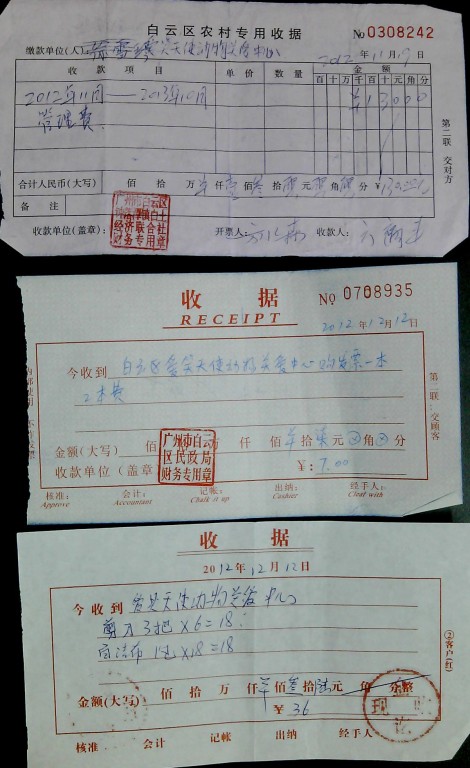 白云区农村专用收据
No 0308242
缴款单位(人): 天使动物关爱中心
2012年11月17日
收款项目 单价 数量 金额 百十万千百十元角分
2012年11月——2013年10月 ¥130000
管理费
合计人民币(大写) 佰 拾 万 仟 佰 拾 元 角 分 ¥
备注
收款单位(盖章): 开票人: 收款人:
第二联 交对方
财务专用章
收据
RECEIPT
No 0708935
2012年12月12日
今收到 白云区爱笑天使动物关爱中心购发票一本
工本费
金额(大写) 佰 万 仟 佰 拾柒元 角 分
收款单位(盖章 ¥: 7.00
广州市白云
区民政局
财务专用章
核准: 会计: 记帐: 出纳: 经手人:
Approve Accountant Chalk it up Cashier Cleat with
第二联:交顾客
收据
2012年12月12日
今收到 天使动物关爱中心
剪刀3把×6=18
×18=18
金额(大写) 佰 拾 万 仟 佰叁拾陆元 角 分整
¥ 36
现 讫
核准 会计 记帐 出纳 经手人
②客户(红)